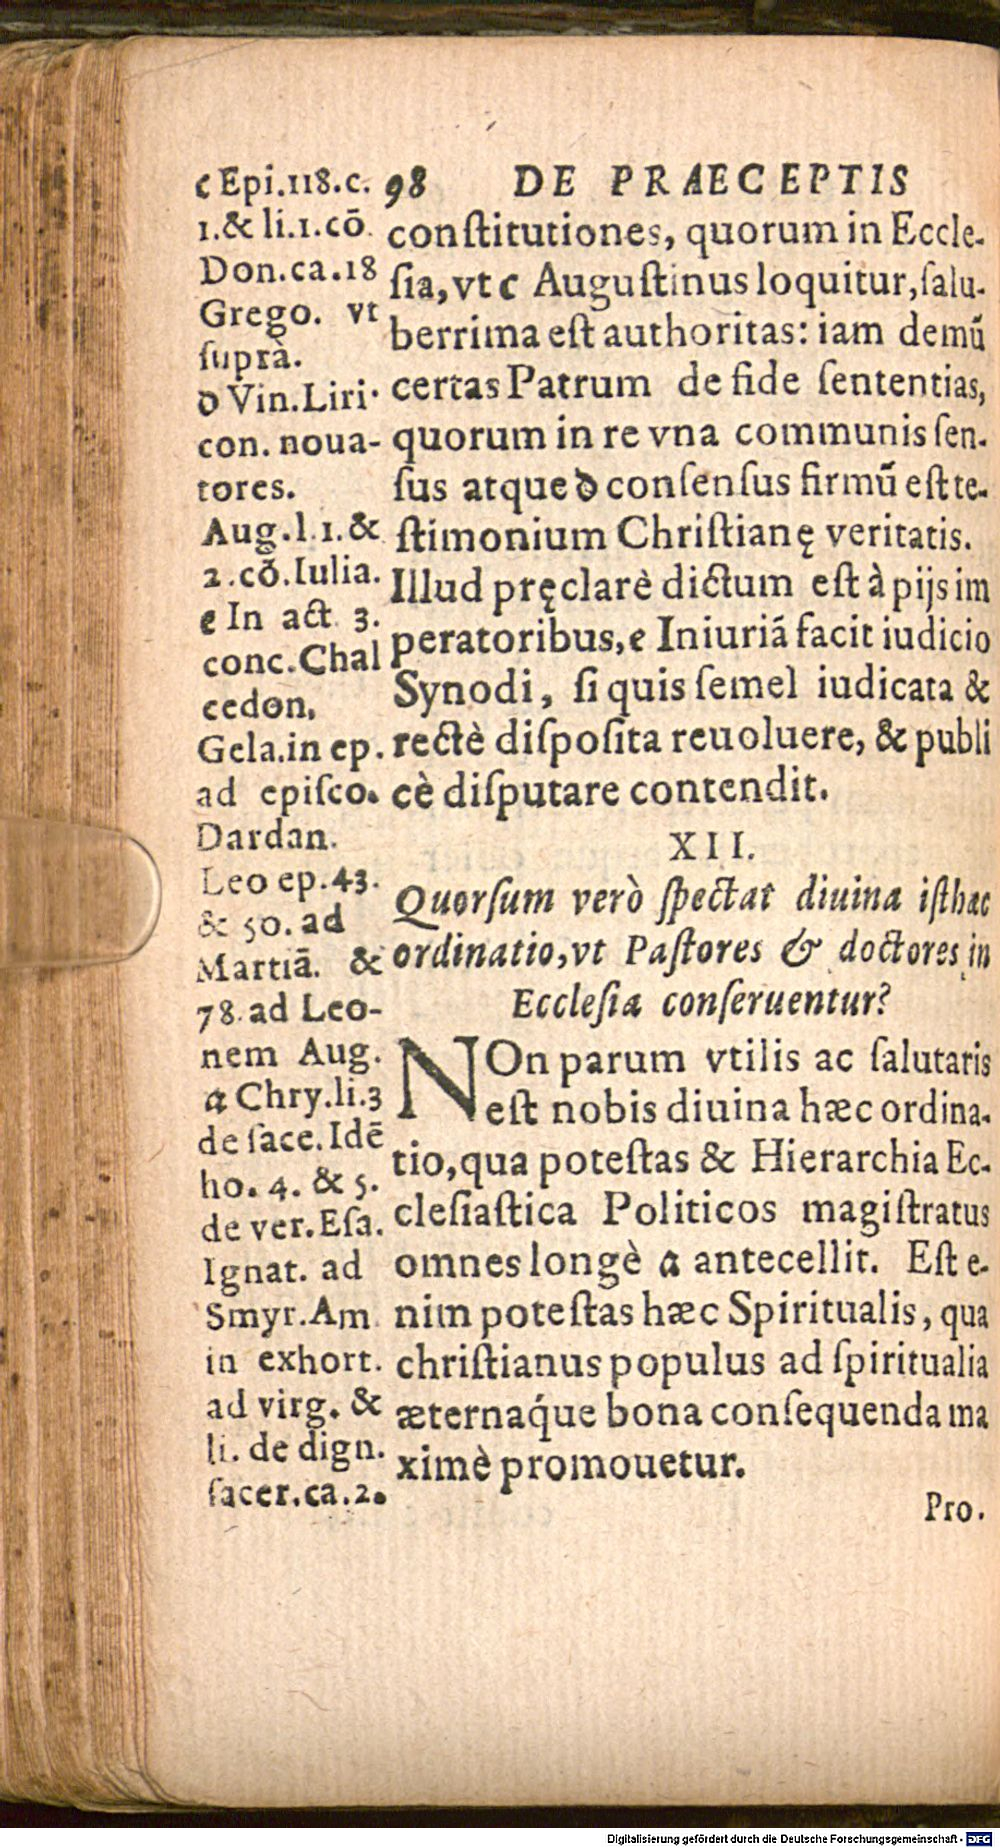 98 DE PRAECEPTIS
conſtitutiones, quorum in Eccle-
ſia, vt c Auguſtinus loquitur, ſalu-
berrima eſt authoritas: iam demũ
certas Patrum de fide ſententias,
quorum in re vna communis ſen-
ſus atque d conſenſus firmũ eſt te-
ſtimonium Chriſtianę veritatis.
Illud pręclarè dictum eſt à pijs im
peratoribus, e Iniuriã facit iudicio
Synodi, ſi quis ſemel iudicata &
rectè diſpoſita reuoluere, & publi
cè diſputare contendit.
XII.
Quorſum verò ſpectat diuina iſthæc
ordinatio, vt Paſtores & doctores in
Eccleſia conſeruentur?
NOn parum vtilis ac ſalutaris
eſt nobis diuina hæc ordina-
tio, qua poteſtas & Hierarchia Ec-
cleſiaſtica Politicos magiſtratus
omnes longè a antecellit. Eſt e-
nim poteſtas hæc Spiritualis, qua
chriſtianus populus ad ſpiritualia
æternaq́ue bona conſequenda ma
ximè promouetur.
Pro.
c Epi.118.c.
1.& li.1.cõ
Don.ca.18
Grego. vt
ſuprà.
d Vin.Liri.
con. noua-
tores.
Aug.l.1.&
2.cõ.Iulia.
e In act. 3.
conc.Chal
cedon,
Gela.in ep.
ad epiſco.
Dardan.
Leo ep.43.
& 50. ad
Martiã. &
78. ad Leo-
nem Aug.
a Chry.li.3
de ſace. Idẽ
ho. 4. & 5.
de ver. Eſa.
Ignat. ad
Smyr. Am
in exhort.
ad virg. &
li. de dign.
ſacer.ca.2.
Digitalisierung gefördert durch die Deutsche Forschungsgemeinschaft - DFG